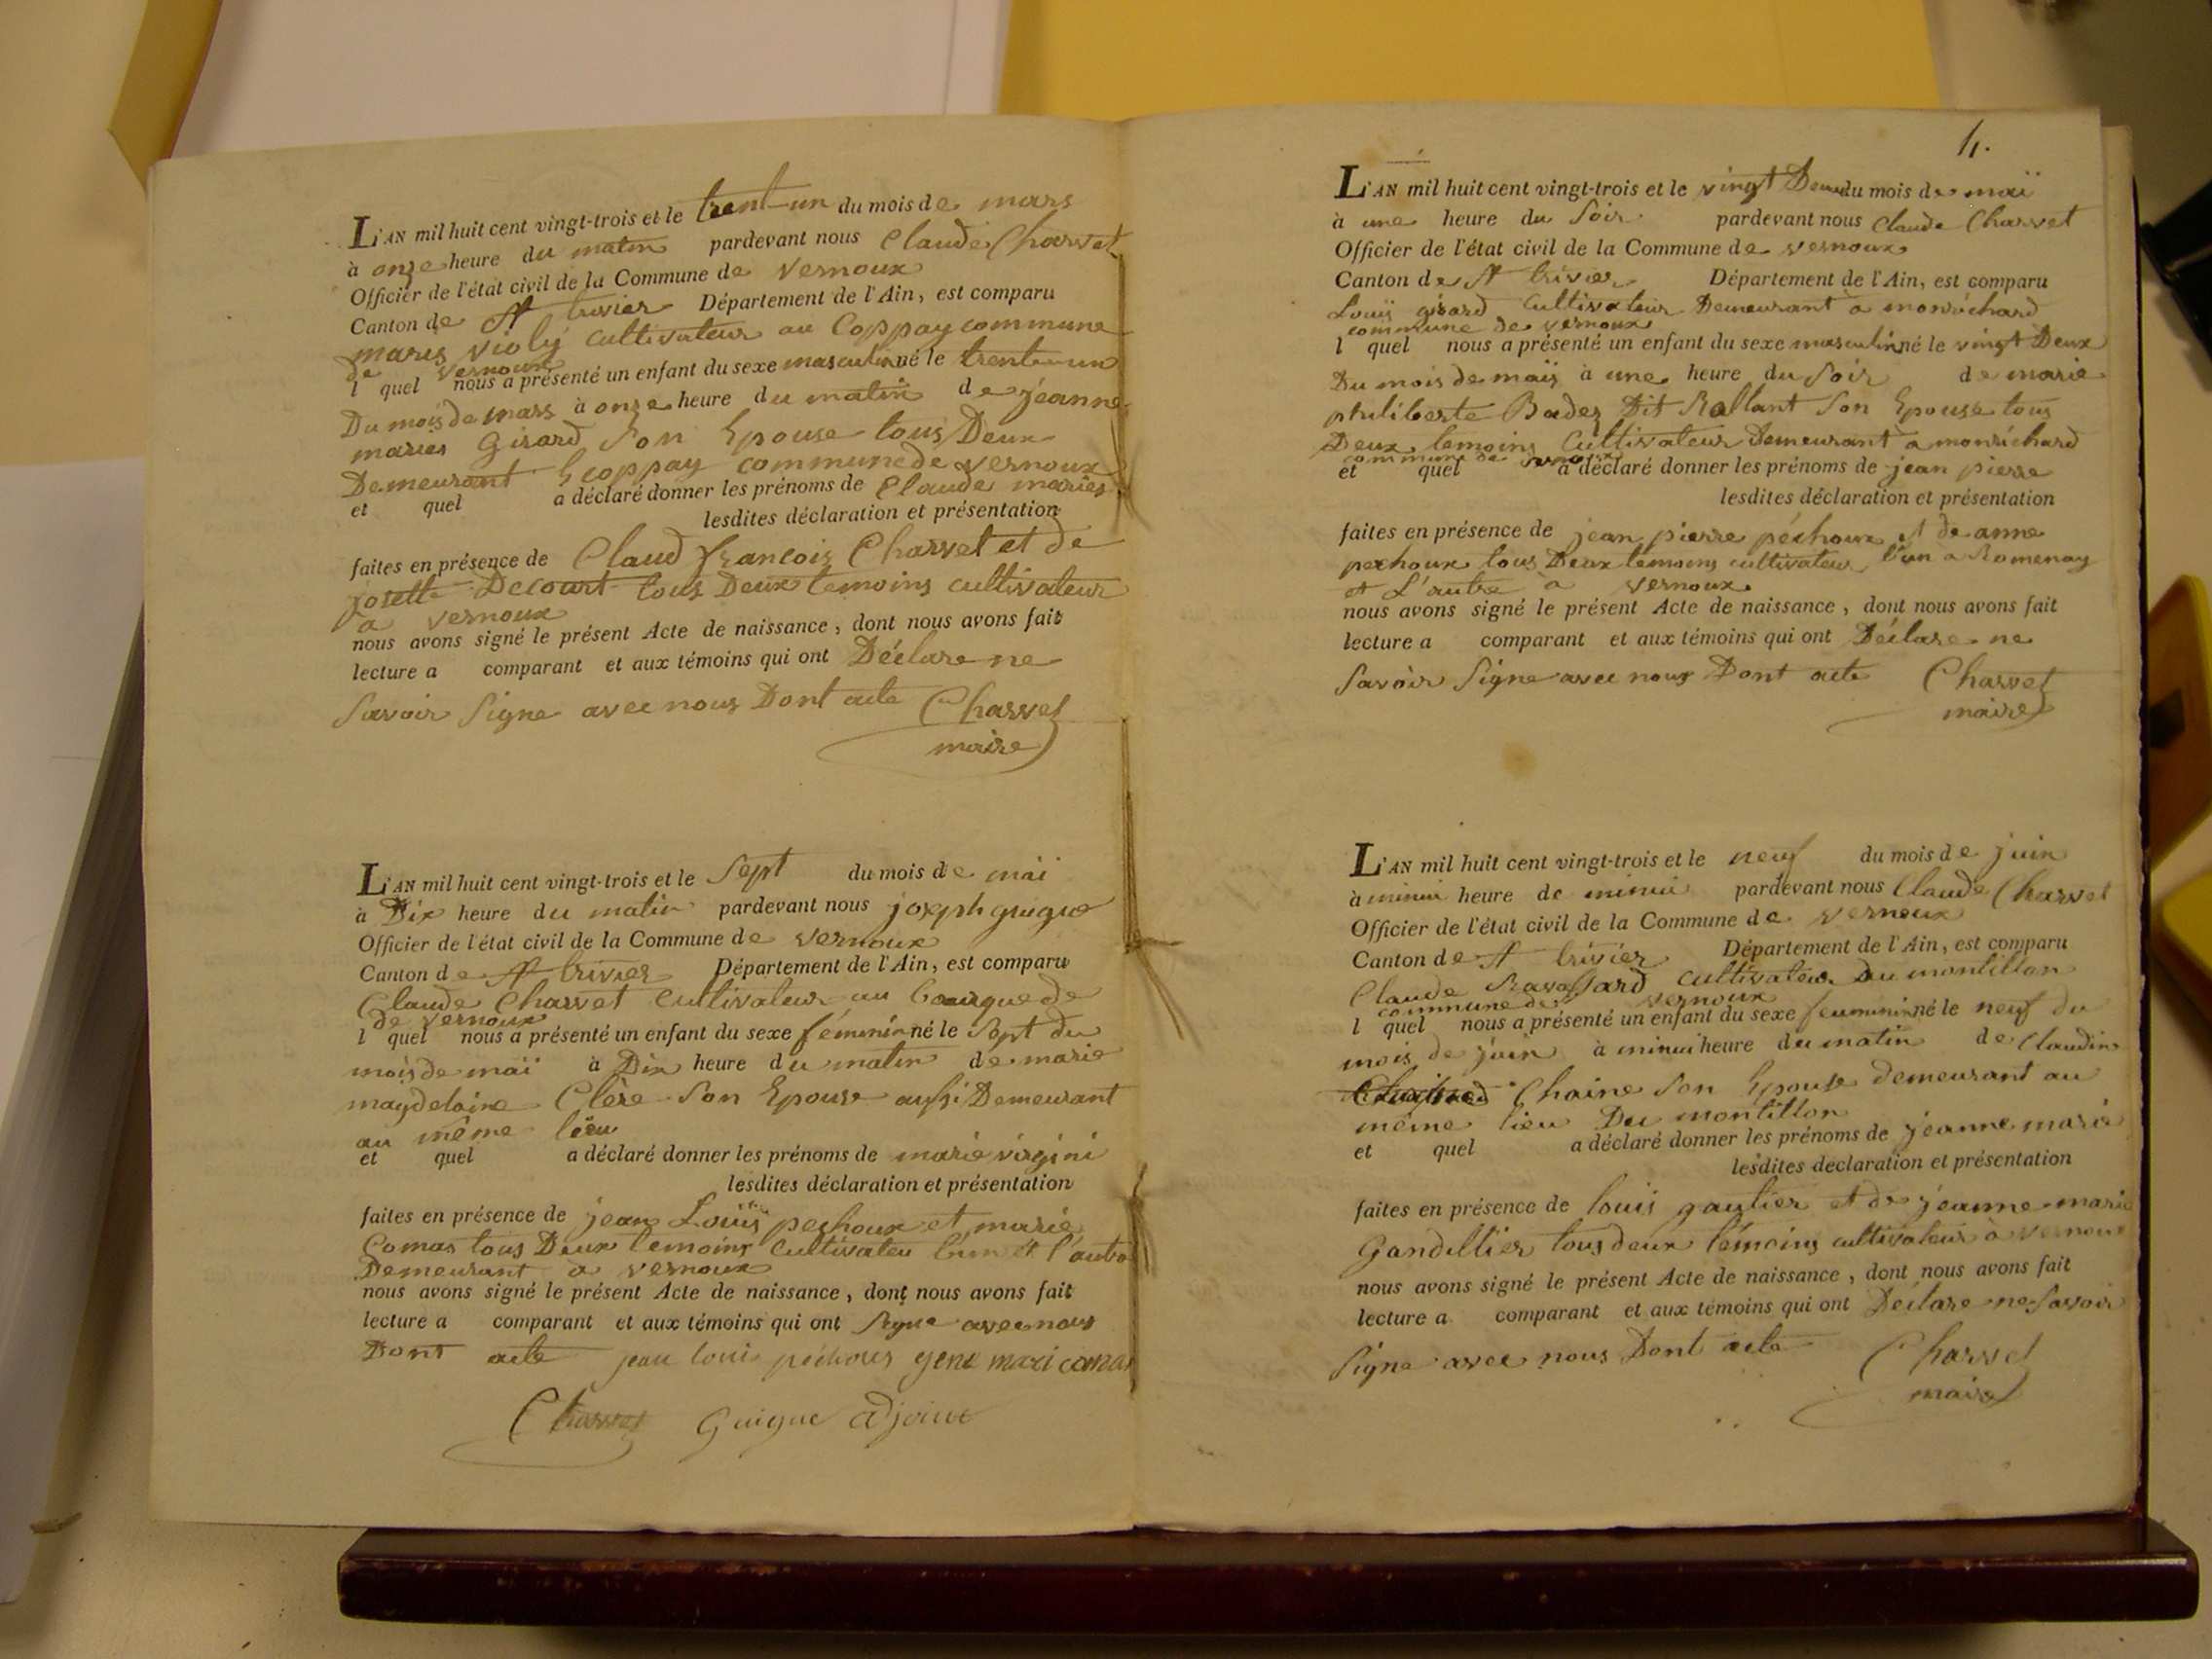 L'AN mil huit cent vingt-trois et le trent-un du mois de mars
à onze heure du matin pardevant nous Claude Charvet
Officier de l'état civil de la Commune de Vernoux
Canton de St trivier Département de l'Ain, est comparu
maris violy cultivateur au Coppay commune
de vernoux
l quel nous a présenté un enfant du sexe masculin né le trente-un
Du mois de mars à onze heure du matin de jéanne
maries Girard Son Epouse tous Deux
Demeurant Ecoppay commune de vernoux
et quel a déclaré donner les prénoms de Claude maries
lesdites déclaration et présentation
faites en présence de Claud françois Charvet et de
josette Decourt tous Deux temoins cultivateur
a vernoux
nous avons signé le présent Acte de naissance, dont nous avons fait
lecture a comparant et aux témoins qui ont Déclare ne
Savoir Signe avec nous Dont acte Charvet
maire
L'AN mil huit cent vingt-trois et le Sept du mois de mai
à Dix heure du matin pardevant nous joseph guigue
Officier de l'état civil de la Commune de vernoux
Canton de St trivier Département de l'Ain, est comparu
Claude Charvet Cultivateur au
de vernoux
l quel nous a présenté un enfant du sexe féminin né le Sept du
mois de maï à Dix heure du matin de marie
maydelaine Clère Son Epouse aussi Demeurant
au même lieu
et quel a déclaré donner les prénoms de marie virgini
lesdites déclaration et présentation
faites en présence de jean Louis pechoux et marie
Comas tous Deux temoins Cultivateu l'un et l'autre
Demeurant a vernoux
nous avons signé le présent Acte de naissance, dont nous avons fait
lecture a comparant et aux témoins qui ont Signe avec nous
Dont acte jean loui péchous gene mari comas
Charvet Guigue adjoint
4.
L'AN mil huit cent vingt-trois et le vingt Deux du mois de maï
à une heure du Soir pardevant nous Claude Charvet
Officier de l'état civil de la Commune de vernoux
Canton de St trivier Département de l'Ain, est comparu
Louis girard Cultivateur Demeurant a monrichard
commune de vernoux
l quel nous a présenté un enfant du sexe masculin né le vingt Deux
Du mois de mais à une heure du Soir de marie
philiberte Badez Dit Rollant Son Epouse tous
Deux temoins Cultivateur Demeurant a monrichard
commune de vernoux
et quel a déclaré donner les prénoms de jean pierre
lesdites déclaration et présentation
faites en présence de jean pierre péchoux et de anne
pechoux tous Deux temoins cultivateur l'un a Romenay
et L'autre a vernoux
nous avons signé le présent Acte de naissance, dont nous avons fait
lecture a comparant et aux témoins qui ont Déclare ne
Savoir Signe avec nous Dont acte Charvet
maire
L'AN mil huit cent vingt-trois et le neuf du mois de juin
à minui heure de minui pardevant nous Claude Charvet
Officier de l'état civil de la Commune de vernoux
Canton de St trivier Département de l'Ain, est comparu
Claude Ravassard cultivateur Du montillon
commune de vernoux
l quel nous a présenté un enfant du sexe feuminin né le neuf du
mois de juin à minui heure du matin de Claudin
Chaine Son Epouse demeurant au
même lieu Du montillon
et quel a déclaré donner les prénoms de jeanne marie
lesdites déclaration et présentation
faites en présence de louis gautier et de jeanne marie
Gandillier tous deux témoins cultivateur à vernoux
nous avons signé le présent Acte de naissance, dont nous avons fait
lecture a comparant et aux témoins qui ont Déclare ne Savoir
Signe avec nous Dont acte Charvet
maire